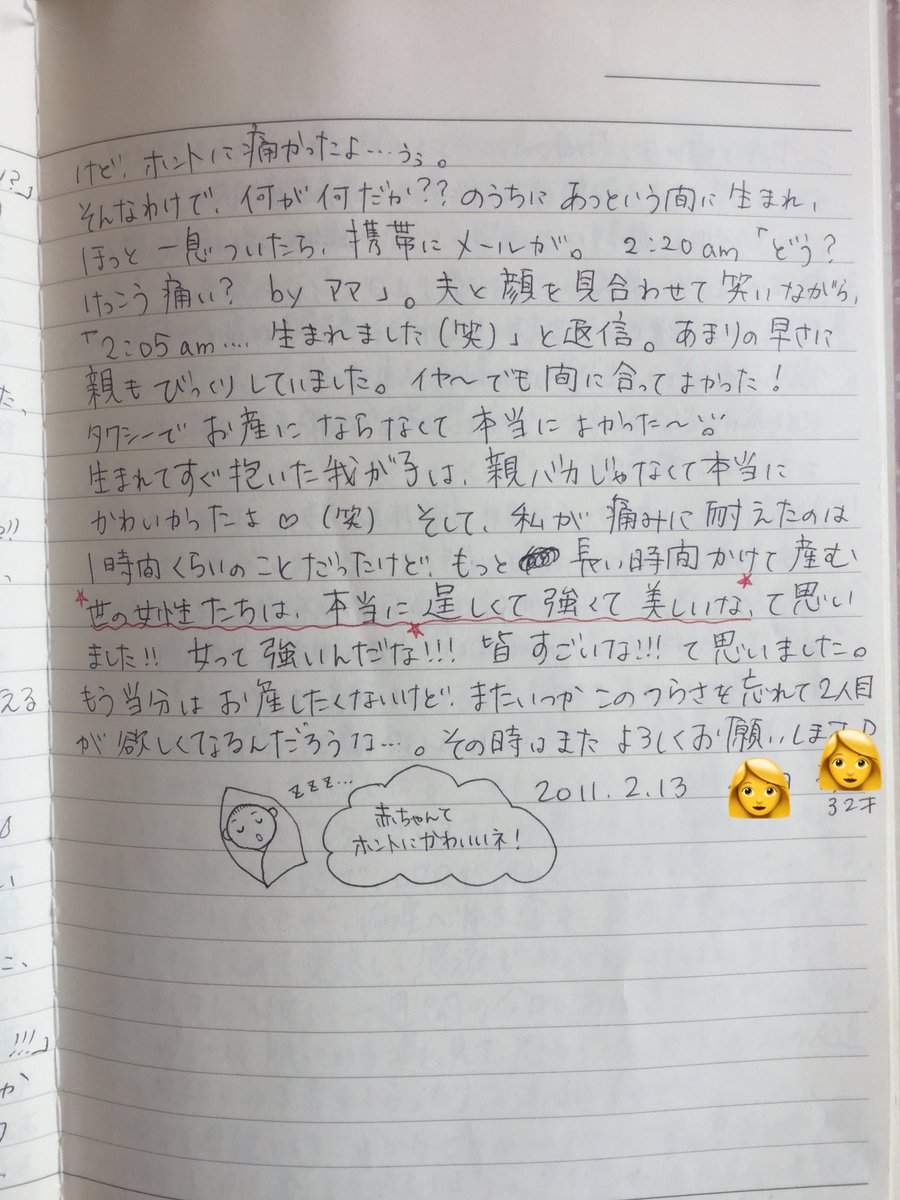 けど、ホントに痛かったよ…うぅ。
そんなわけで、何が何だか??のうちにあっという間に生まれ、
ほっと一息ついたら、携帯にメールが。 2:20am「どう?
けっこう痛い? byママ」。夫と顔を見合わせて笑いながら、
「2:05am…. 生まれました(笑)」と返信。あまりの早さに
親もびっくりしていました。イヤ〜でも間に合ってよかった!
タクシーでお産にならなくて本当によかった〜
生まれてすぐ抱いた我が子は、親バカじゃなくて本当に
かわいかったよ♡(笑) そして、私が痛みに耐えたのは
1時間くらいのことだったけど、もっと長い時間かけて産む
世の女性たちは、本当に逞しくて強くて美しいな、て思い
ました!! 女って強いんだな!!! 皆すごいな!!!て思いました。
もう当分はお産したくないけど、またいつかこのつらさを忘れて2人目
が欲しくなるんだろうな…。その時はまたよろしくお願いします
2011.2.13
32才
zzz…
赤ちゃんて
ホントにかわいいネ!